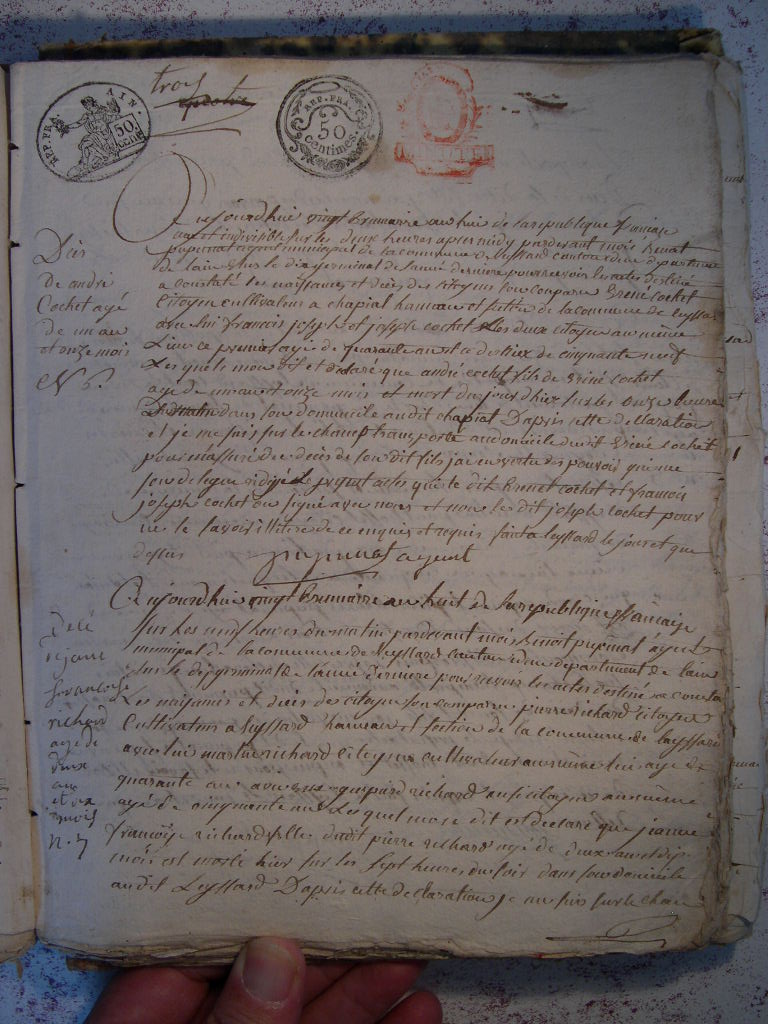 trois
REP. FRA. AIN.
50 CENT.
REP. FRA.
50
centimes.
Deces
De andré
Cochet agé
De un an
et onze mois
N 6.
Aujourdhui vingt Brumaire an huit de la republique
une et indivisible sur les deux heures apres midy pardevant mois Benoit
pupunat agent municipal de la commune de Leyssard canton departement
De lain Elus le dix germinal de lannée derniere pour recevoir les actes destiné
a constaté les naissances et décès des Citoyens son comparu cochet
Citoyen cultivateur a chapiat hameau et section de la commune de Leyssard
avec lui francois joseph et joseph cochet Les deux citoyen au même
Lieu ce premier agée de quarante ans et a de lieux de cinquante neuf
Les quels mon dit et declare que andré cochet fils de cochet
agé de un an et onze mois et mort du jourdhier sur les onze heures
dans son domicille audit chapiat Dapres cette declaration
et je me suis sur le champ transporté au domicile du dit cochet
pour massuré du décès de son dit fils jai en vertu des pouvoir que me
son delegué redigé Le present actes que le dit cochet et francois
joseph cochet on signé avec nous et non le dit joseph cochet pour
ne le savoir illitéré de ce enquis et requis fait a Leyssard le jour et que
dessus
agent
jeane
francoise
richard
agé de
deux
ans
et dix
mois
n. 7
Aujourdhuis vingt Brumaire an huit de la republique francaise
sur Les neuf heures du matin pardevant mois Benoit pupunat agent
municipal de la commune de Leyssard canton departement de lain
Elus le dix germinal de lannée derniere pour recevoir les actes destiné a consta
Les naissances et décès des citoyens son comparu pierre richard citoyen
Cultivateur a Leyssard hameau et section de la commune de Leyssard
avec lui martin richard citoyen cultivateur au même lieu agé de
quarante an avec gaspard richard aussi citoyen au même
agé de cinquante ans Les quel mon dit et declaré que jeanne
francoise richard fille du dit pierre richard agé de deux ans et dix
mois est morte hier sur les sept heures du soir dans son domicile
audit Leyssard Dapres cette declaration je me suis sur le cham